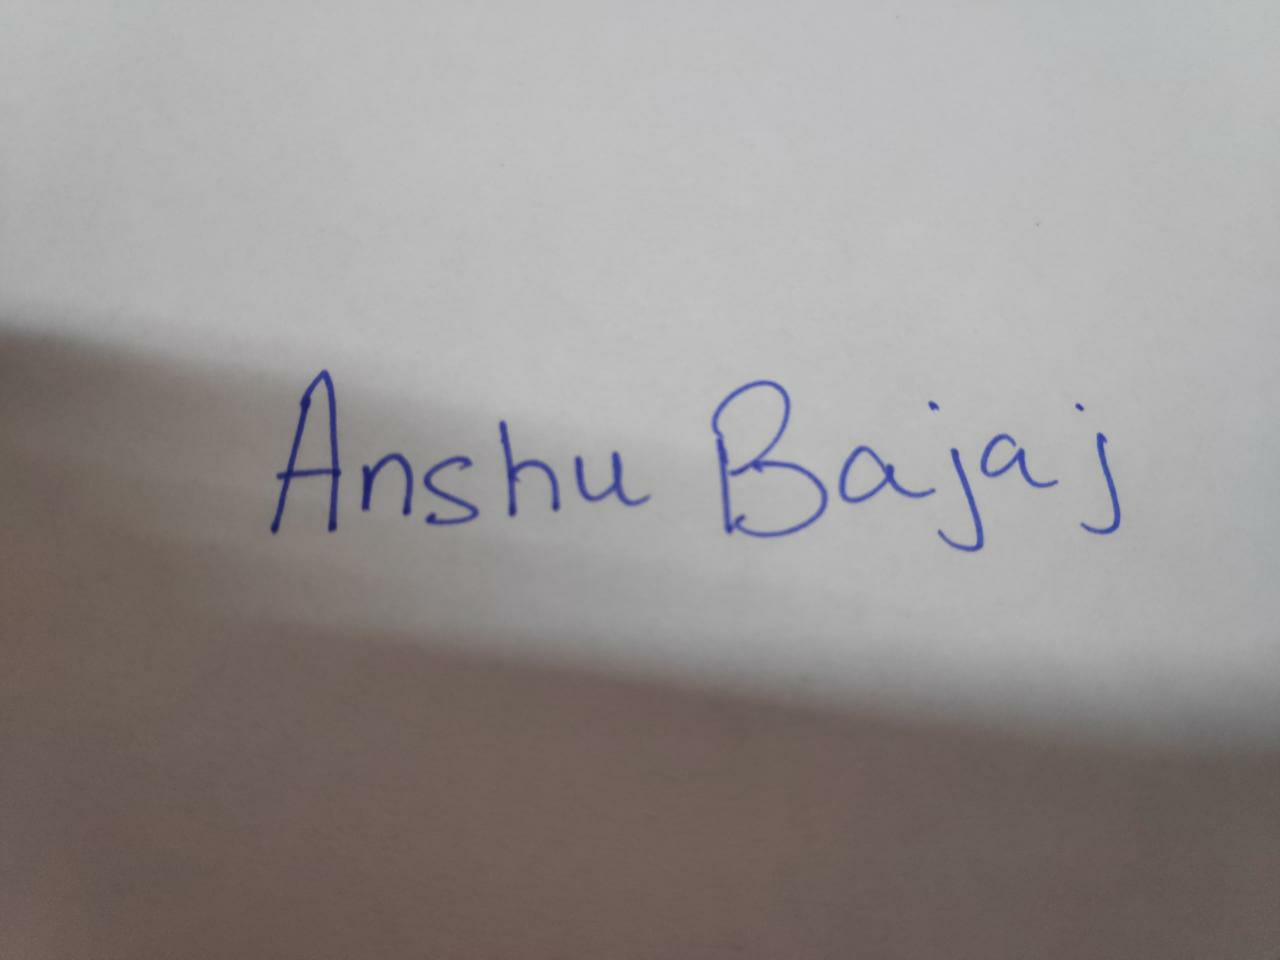 Anshu Bajaj